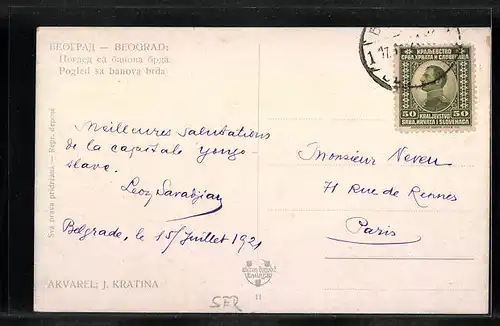 БЕОГРАД — BEOGRAD:
Поглед са банова брда.
Pogled sa banova brda
КРАЉЕВСТВО
СРБА, ХРВАТА И СЛОВЕНАЦА
50 50
KRALJEVSTVO
SRBA, HRVATA I SLOVENACA
Meilleures salutations
de la capitale yougo-
slave.
Belgrade, le 15 Juillet 1921
Monsieur Neveu
71 Rue de Rennes
Paris
Sva prava pridržana — Repr. déposé
AKVAREL: J. KRATINA
SFR
11